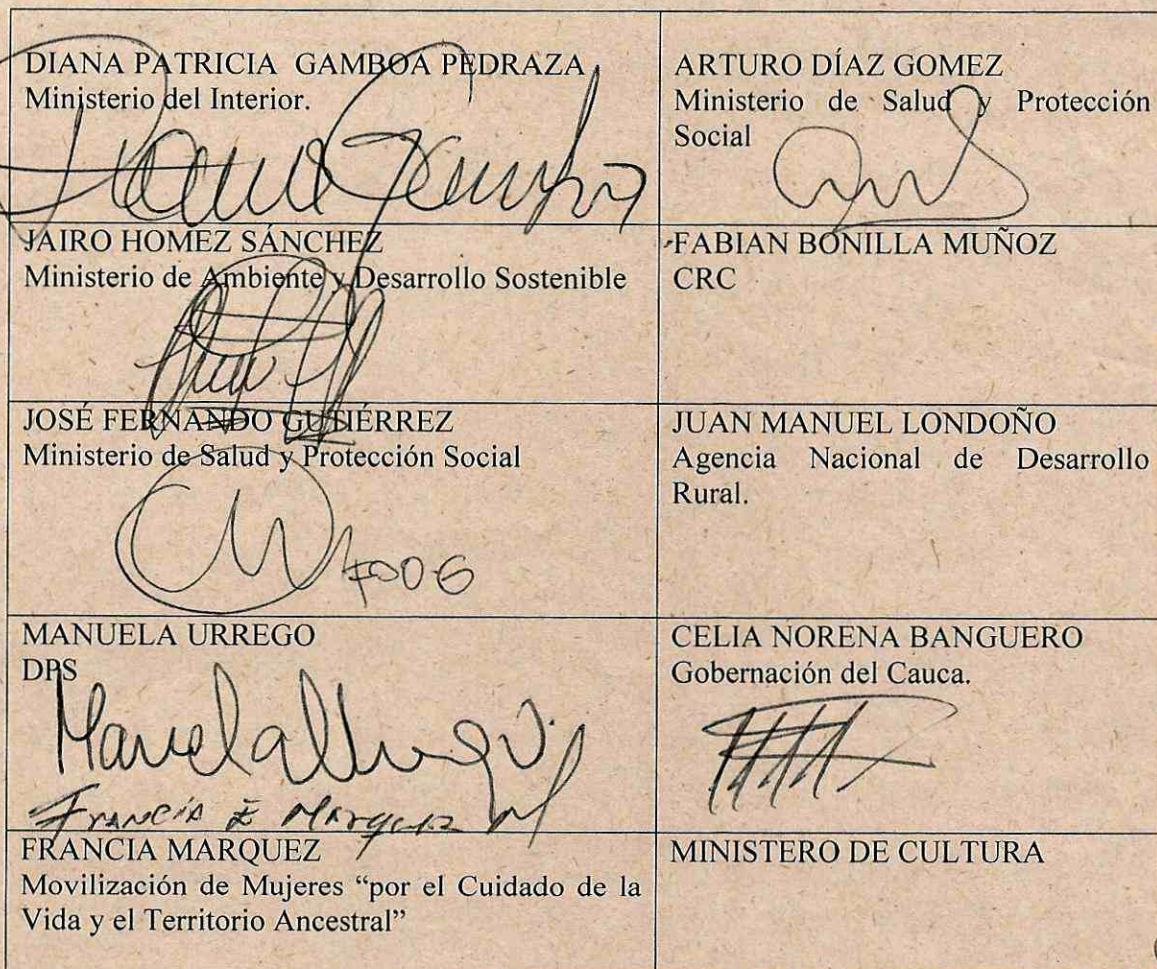 DIANA PATRICIA GAMBOA PEDRAZA
Ministerio del Interior.
Diana Gamboa
ARTURO DÍAZ GOMEZ
Ministerio de Salud y Protección
Social
JAIRO HOMEZ SÁNCHEZ
Ministerio de Ambiente y Desarrollo Sostenible
FABIAN BONILLA MUÑOZ
CRC
JOSÉ FERNANDO GUTIÉRREZ
Ministerio de Salud y Protección Social
JUAN MANUEL LONDOÑO
Agencia Nacional de Desarrollo
Rural.
MANUELA URREGO
DPS
Manuela Urrego
Francia E Marquez M
CELIA NORENA BANGUERO
Gobernación del Cauca.
FRANCIA MARQUEZ
Movilización de Mujeres “por el Cuidado de la
Vida y el Territorio Ancestral”
MINISTERO DE CULTURA